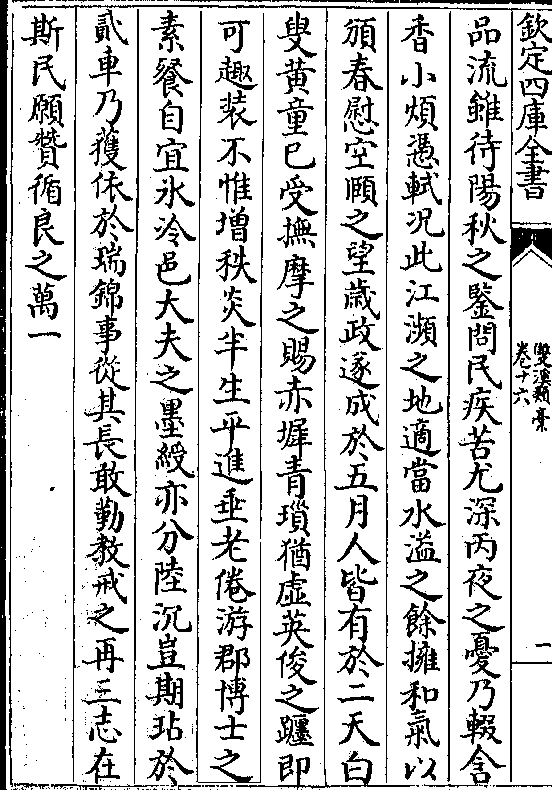 欽定四庫全書
雙溪類稾
卷十六
一
品流雖待陽秋之鑒問民疾苦尤深丙夜之憂乃輟含
香小煩憑軾况此江瀕之地適當水溢之餘擁和氣以
頒春慰空頤之望歲政遂成於五月人皆有於二天白
叟黄童已受撫摩之賜赤墀青瑣猶虚英俊之躔即
可趣装不惟增秩炎半生平進垂老倦游郡博士之
素餐自宜氷冷邑大夫之墨綬亦分陸沉豈期玷於
貳車乃獲依於瑞錦事從其長敢勤教戒之再三志在
斯民願贊循良之萬一